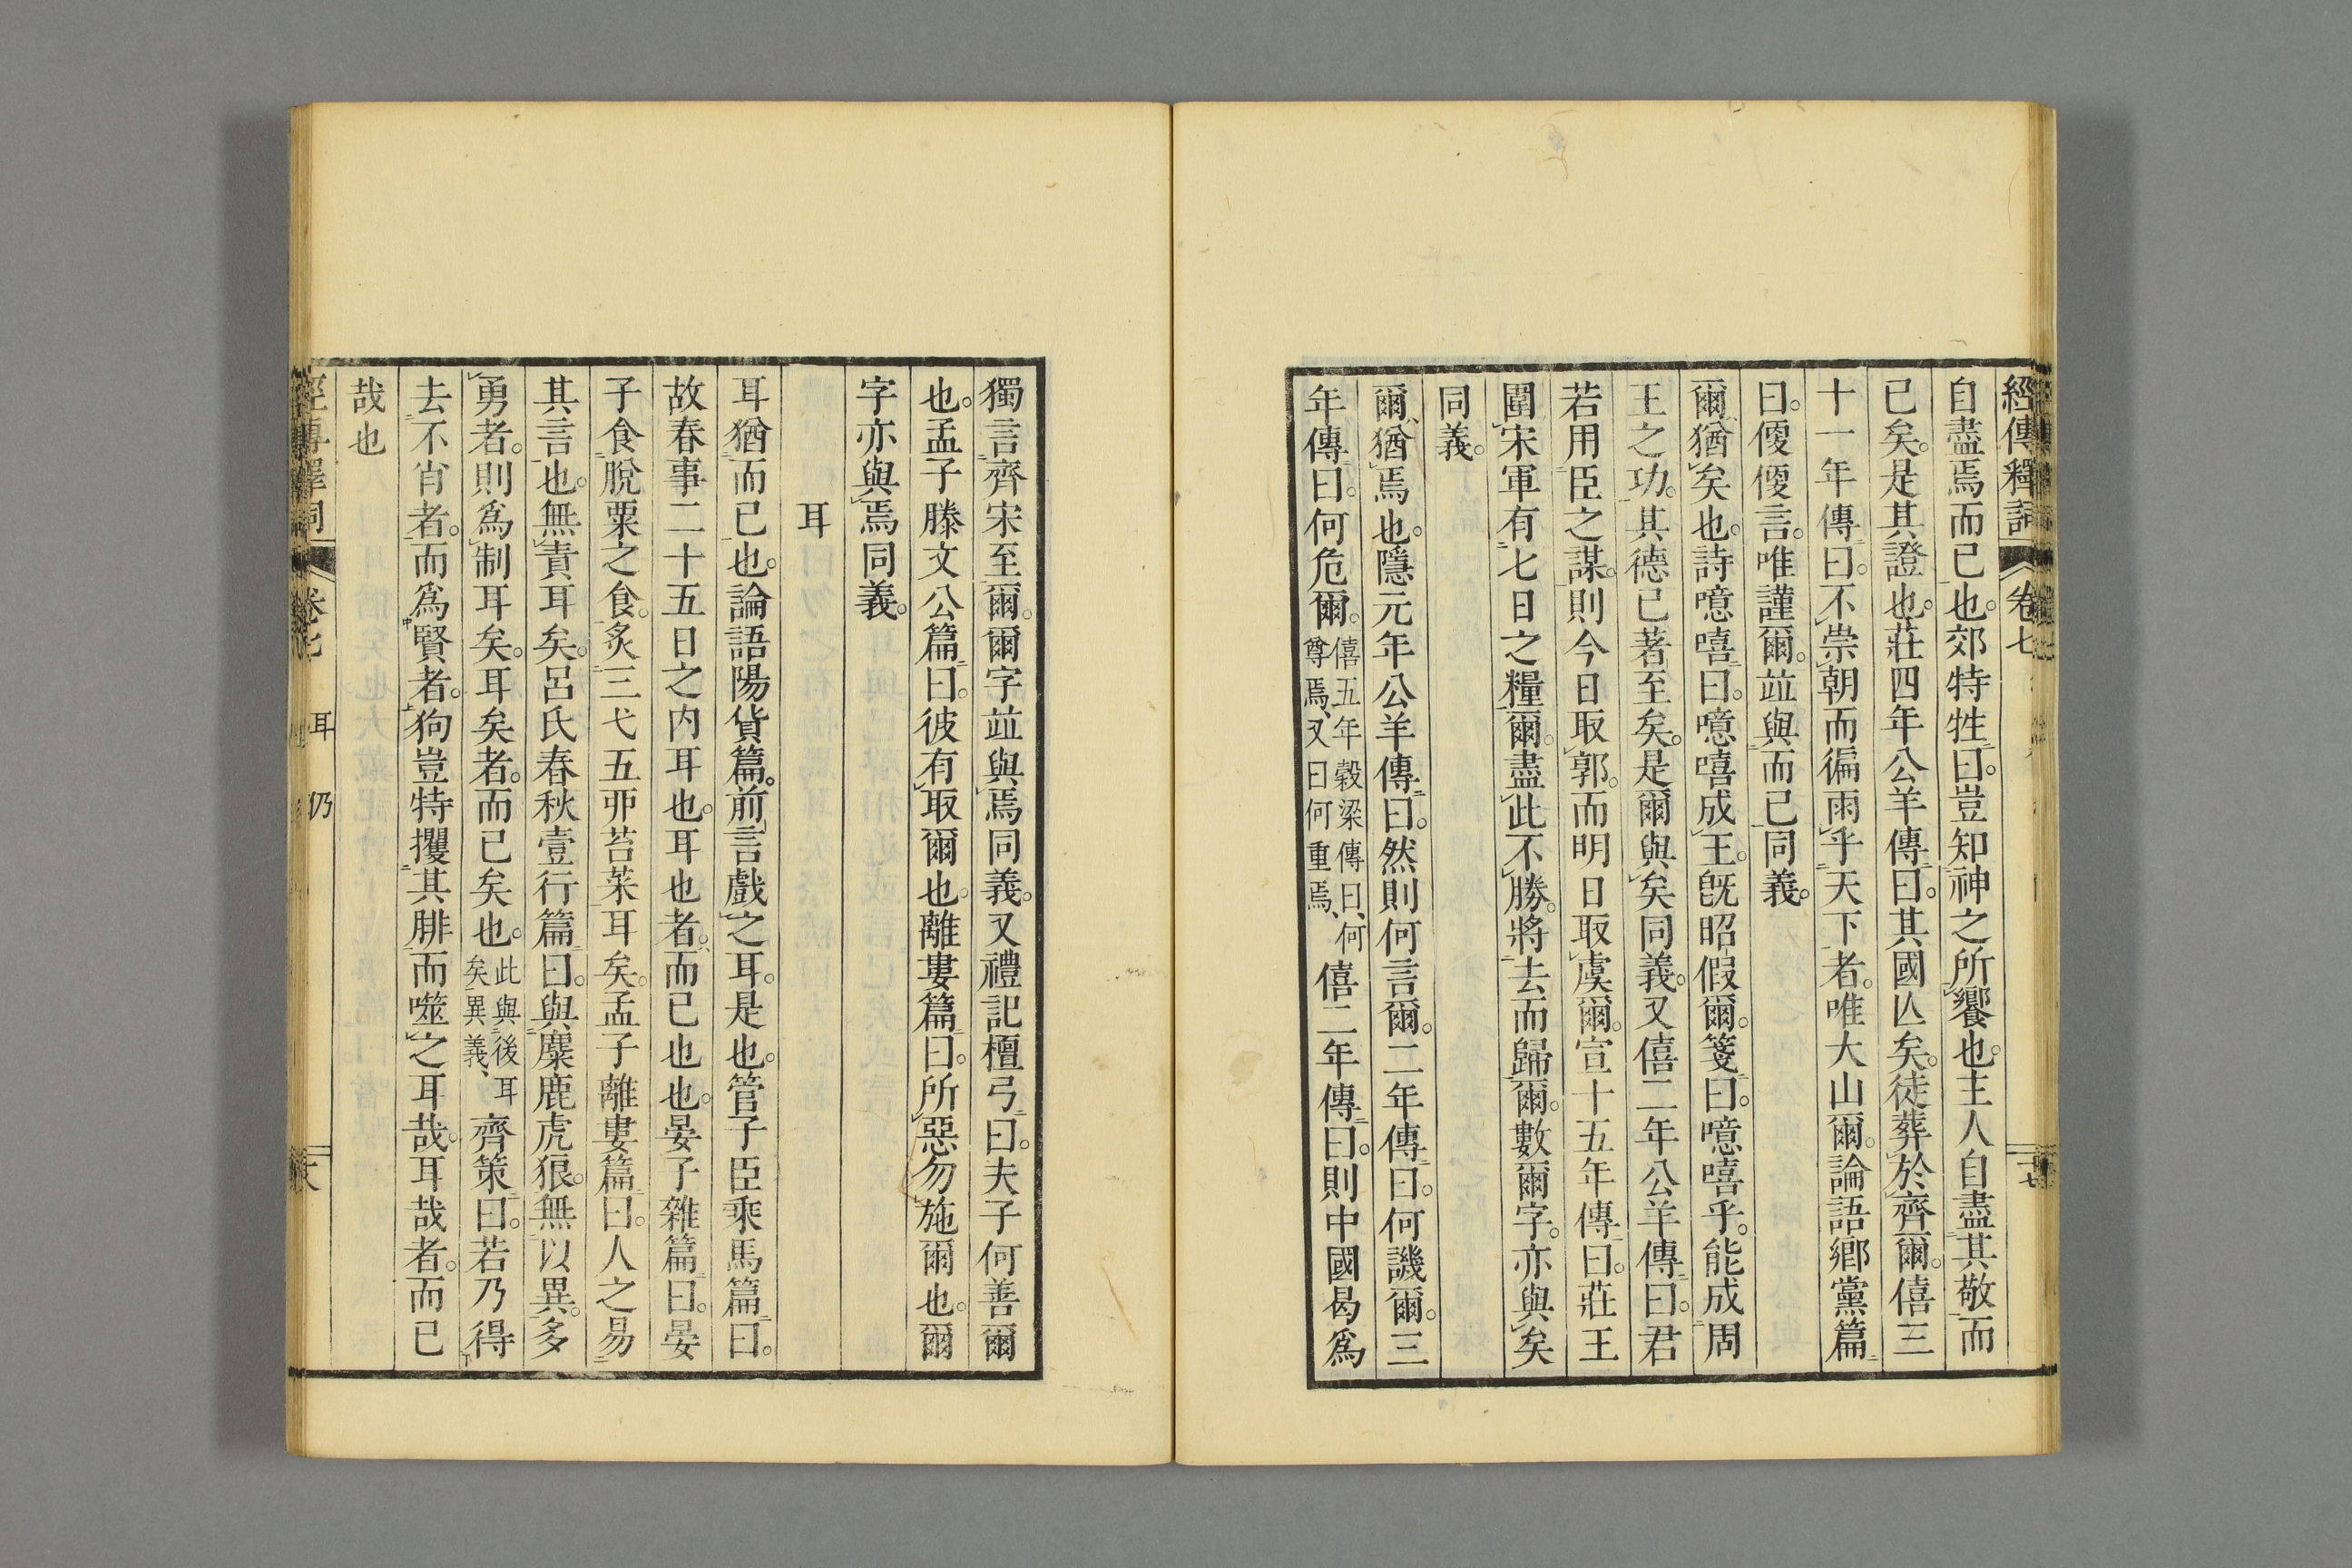 經傳釋詞 卷七 十七
自盡焉而已也。郊特牲曰。豈知神之所饗也。主人自盡其敬而
已矣。是其證也。莊四年公羊傳曰。其國亾矣。徒葬於齊爾。僖三
十一年傳曰。不崇朝而徧雨乎天下者。唯大山爾。論語鄉黨篇
曰。便便言。唯謹爾。竝與而已同義。
爾、猶矣也。詩噫嘻曰。噫嘻成王。旣昭假爾。箋曰。噫嘻乎。能成周
王之功。其德已著至矣。是爾與矣同義。又僖二年公羊傳曰。君
若用臣之謀。則今日取郭。而明日取虞爾。宣十五年傳曰。莊王
圍宋軍有七日之糧爾。盡此不勝。將去而歸爾。數爾字。亦與矣
同義。
爾、猶焉也。隱元年公羊傳曰。然則何言爾。二年傳曰。何譏爾。三
年傳曰。何危爾。僖五年穀梁傳曰、何尊焉、又曰何重焉、僖二年傳曰。則中國曷爲
獨言齊宋至爾。爾字竝與焉同義。又禮記檀弓曰。夫子何善爾
也。孟子滕文公篇曰。彼有取爾也。離婁篇曰。所惡勿施爾也。爾
字亦與焉同義。
耳
耳猶而已也。論語陽貨篇。前言戲之耳。是也。管子臣乘馬篇曰。
故春事二十五日之內耳也。耳也者。而已也也。晏子雜篇曰。晏
子食脫粟之食。炙三弋五卵苔菜耳矣。孟子離婁篇曰。人之易
其言也。無責耳矣。呂氏春秋壹行篇曰。與麋鹿虎狼。無以異。多
勇者。則爲制耳矣。耳矣者。而已矣也。此與後耳矣異義、齊策曰。若乃得
去不肖者。而爲賢者。狗豈特攫其腓而噬之耳哉。耳哉者。而已
哉也
經傳釋詞 卷七 耳 仍 大